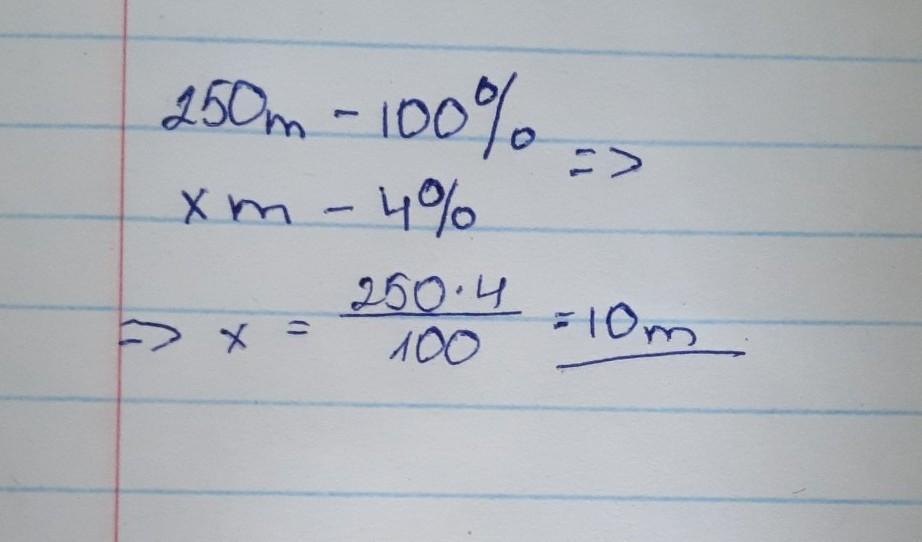 250m - 100%
=>
x m - 4%
=> x = 250·4/100 = 10m